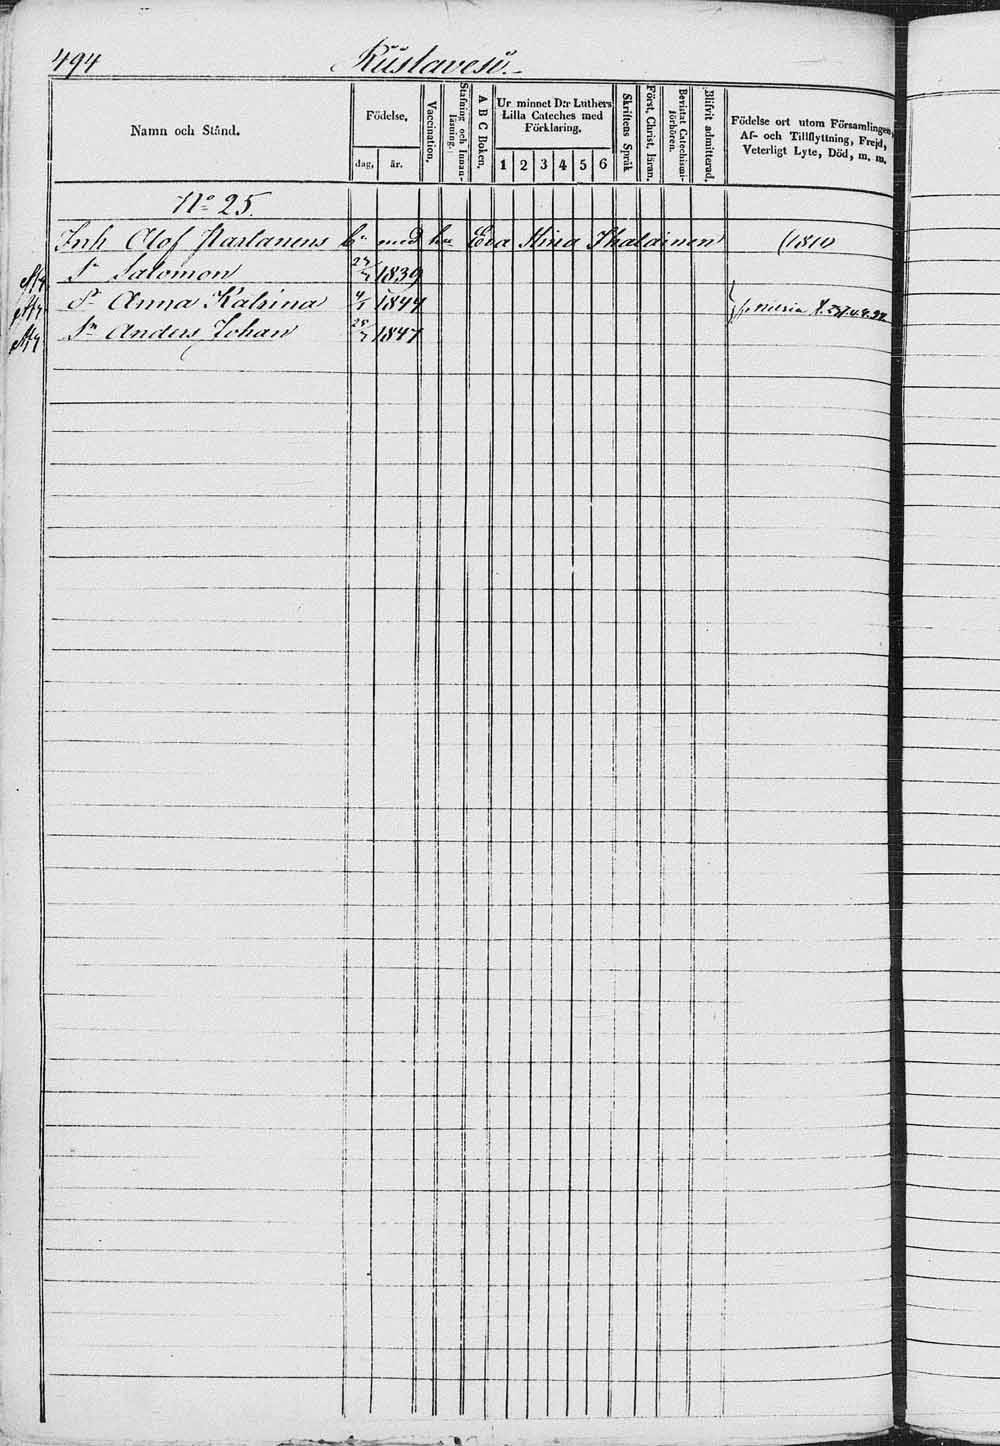 494 Rüstavesi.
Namn och Stånd.
Födelse,
dag, år.
Vaccination.
Stafning och Innan-
läsning.
A B C Boken.
Ur minnet D:r Luthers
Lilla Cateches med
Förklaring.
1 2 3 4 5 6
Skriftens Språk
Först. Christ. läran.
Bevistat Catechismi-
förhören.
Blifvit admitterad.
Födelse ort utom Församlingen,
Af- och Tillflyttning, Frejd,
Veterligt Lyte, Död, m. m.
No 25.
Inh Olof Hartanens bn med hu Eva Stina Ihalainen (1810
Sn Salomon 1839
Dr Anna Katrina 4/1 1844
Sn Anders Johan 1847